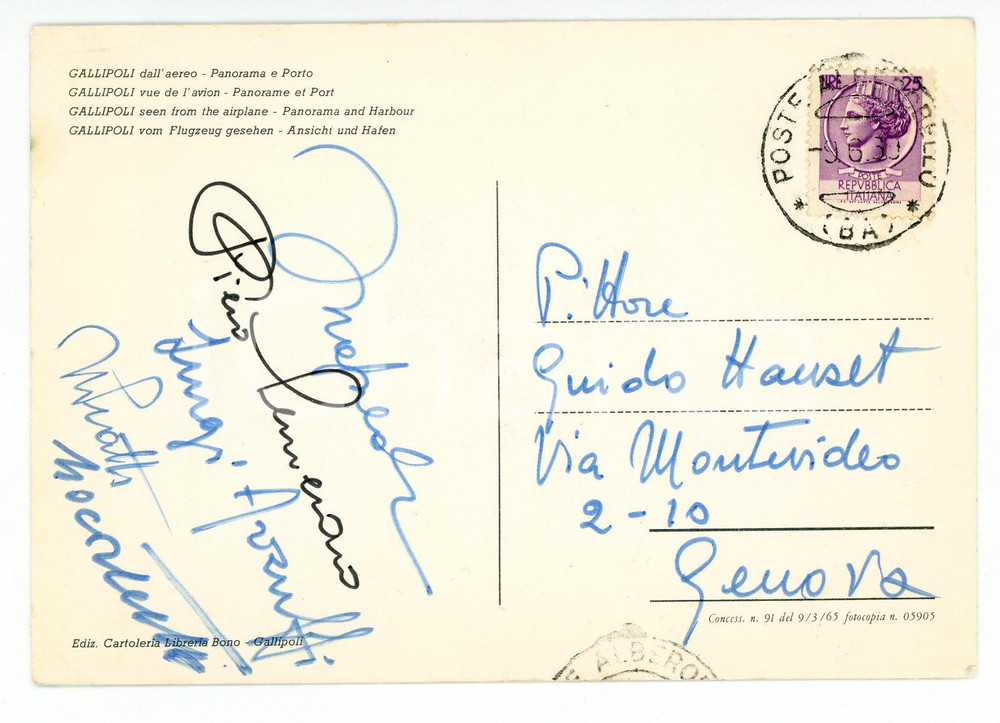 GALLIPOLI dall'aereo - Panorama e Porto
GALLIPOLI vue de l'avion - Panorame et Port
GALLIPOLI seen from the airplane - Panorama and Harbour
GALLIPOLI vom Flugzeug gesehen - Ansicht und Hafen
LIRE 25
POSTE
REPVBBLICA
ITALIANA
POSTE
(BA)
Pittore
Guido Hauset
Via Montevideo
2-10
Genova
Piero
Luigi
Concess. n. 91 del 9/3/65 fotocopia n. 05905
Ediz. Cartoleria Libreria Bono - Gallipoli
ALBERO